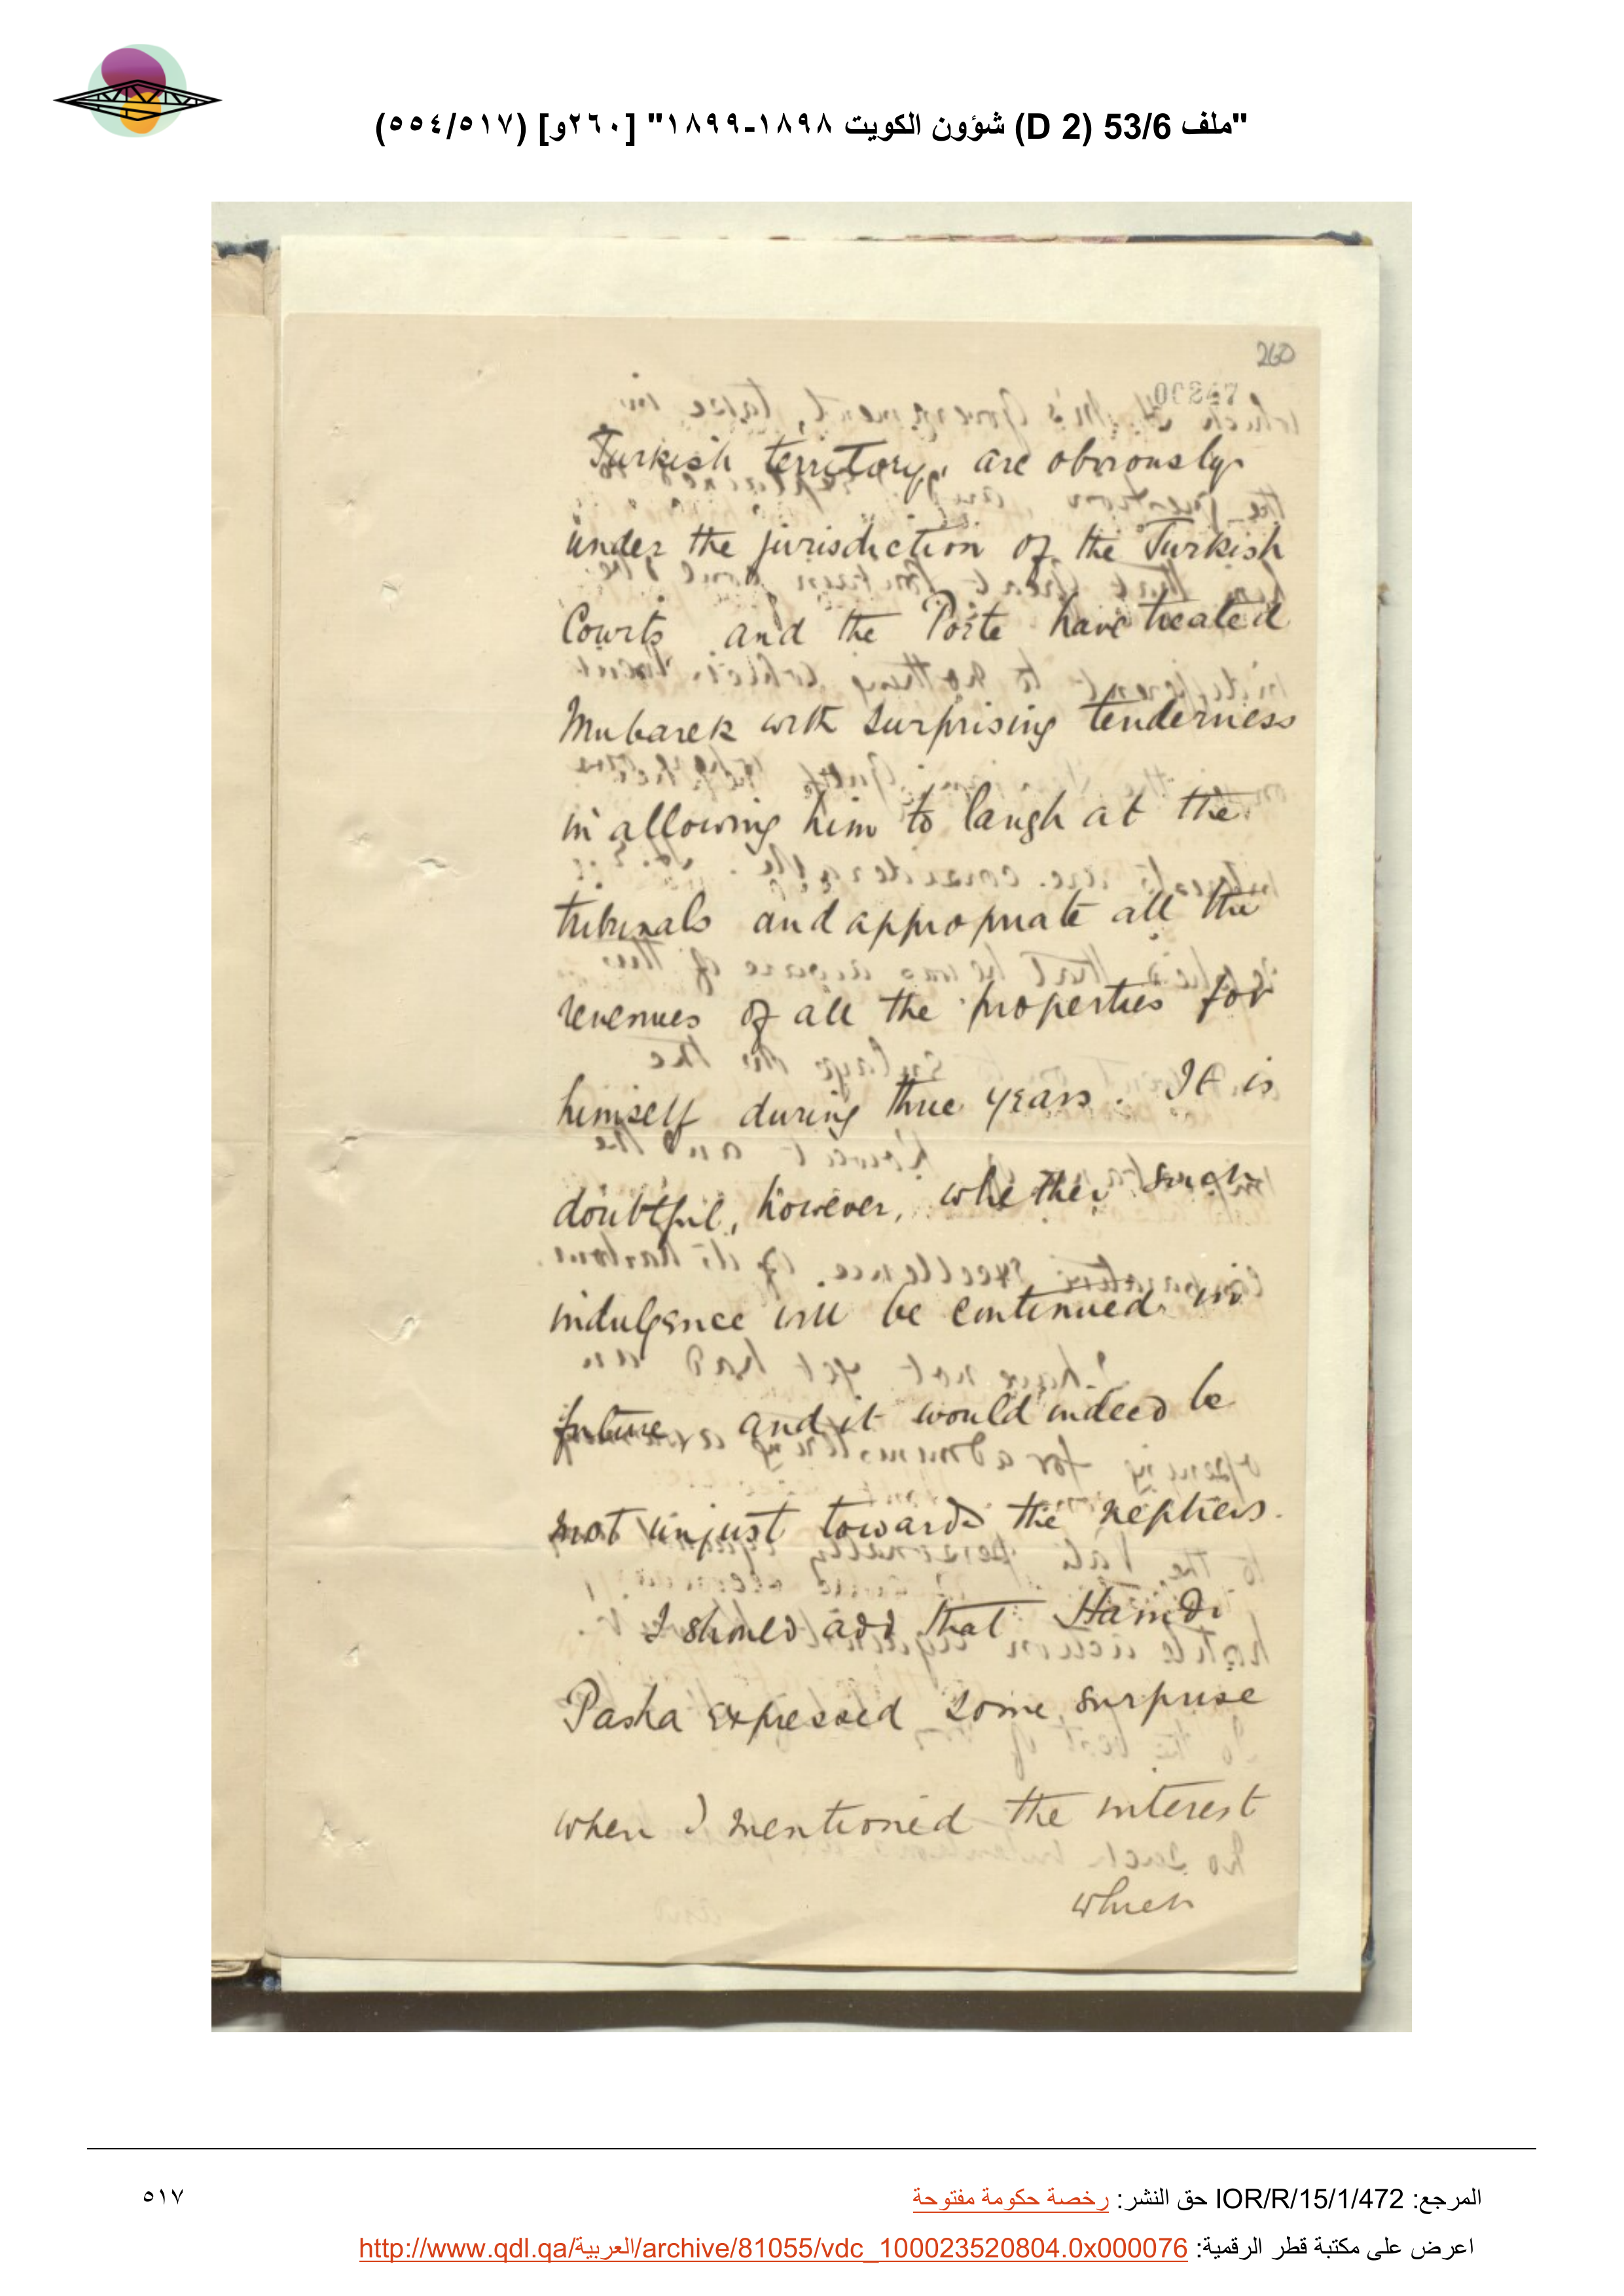 "ملف 53/6 (D 2) شؤون الكويت ١٨٩٨-١٨٩٩" [٢٦٠و] (٥١٧/٥٥٤)
260
00247
Turkish territory, are obviously
under the jurisdiction of the Turkish
Courts and the Porte have treated
Mubarek with surprising tenderness
in allowing him to laugh at the
tribunals and appropriate all the
revenues of all the properties for
himself during three years. It is
doubtful, however, whether such
indulgence will be continued in
future and it would indeed be
not unjust towards the nephews.
I should add that Hamdi
Pasha expressed some surprise
when I mentioned the interest
which
المرجع: IOR/R/15/1/472 حق النشر: رخصة حكومة مفتوحة
٥١٧
اعرض على مكتبة قطر الرقمية: http://www.qdl.qa/العربية/archive/81055/vdc_100023520804.0x000076